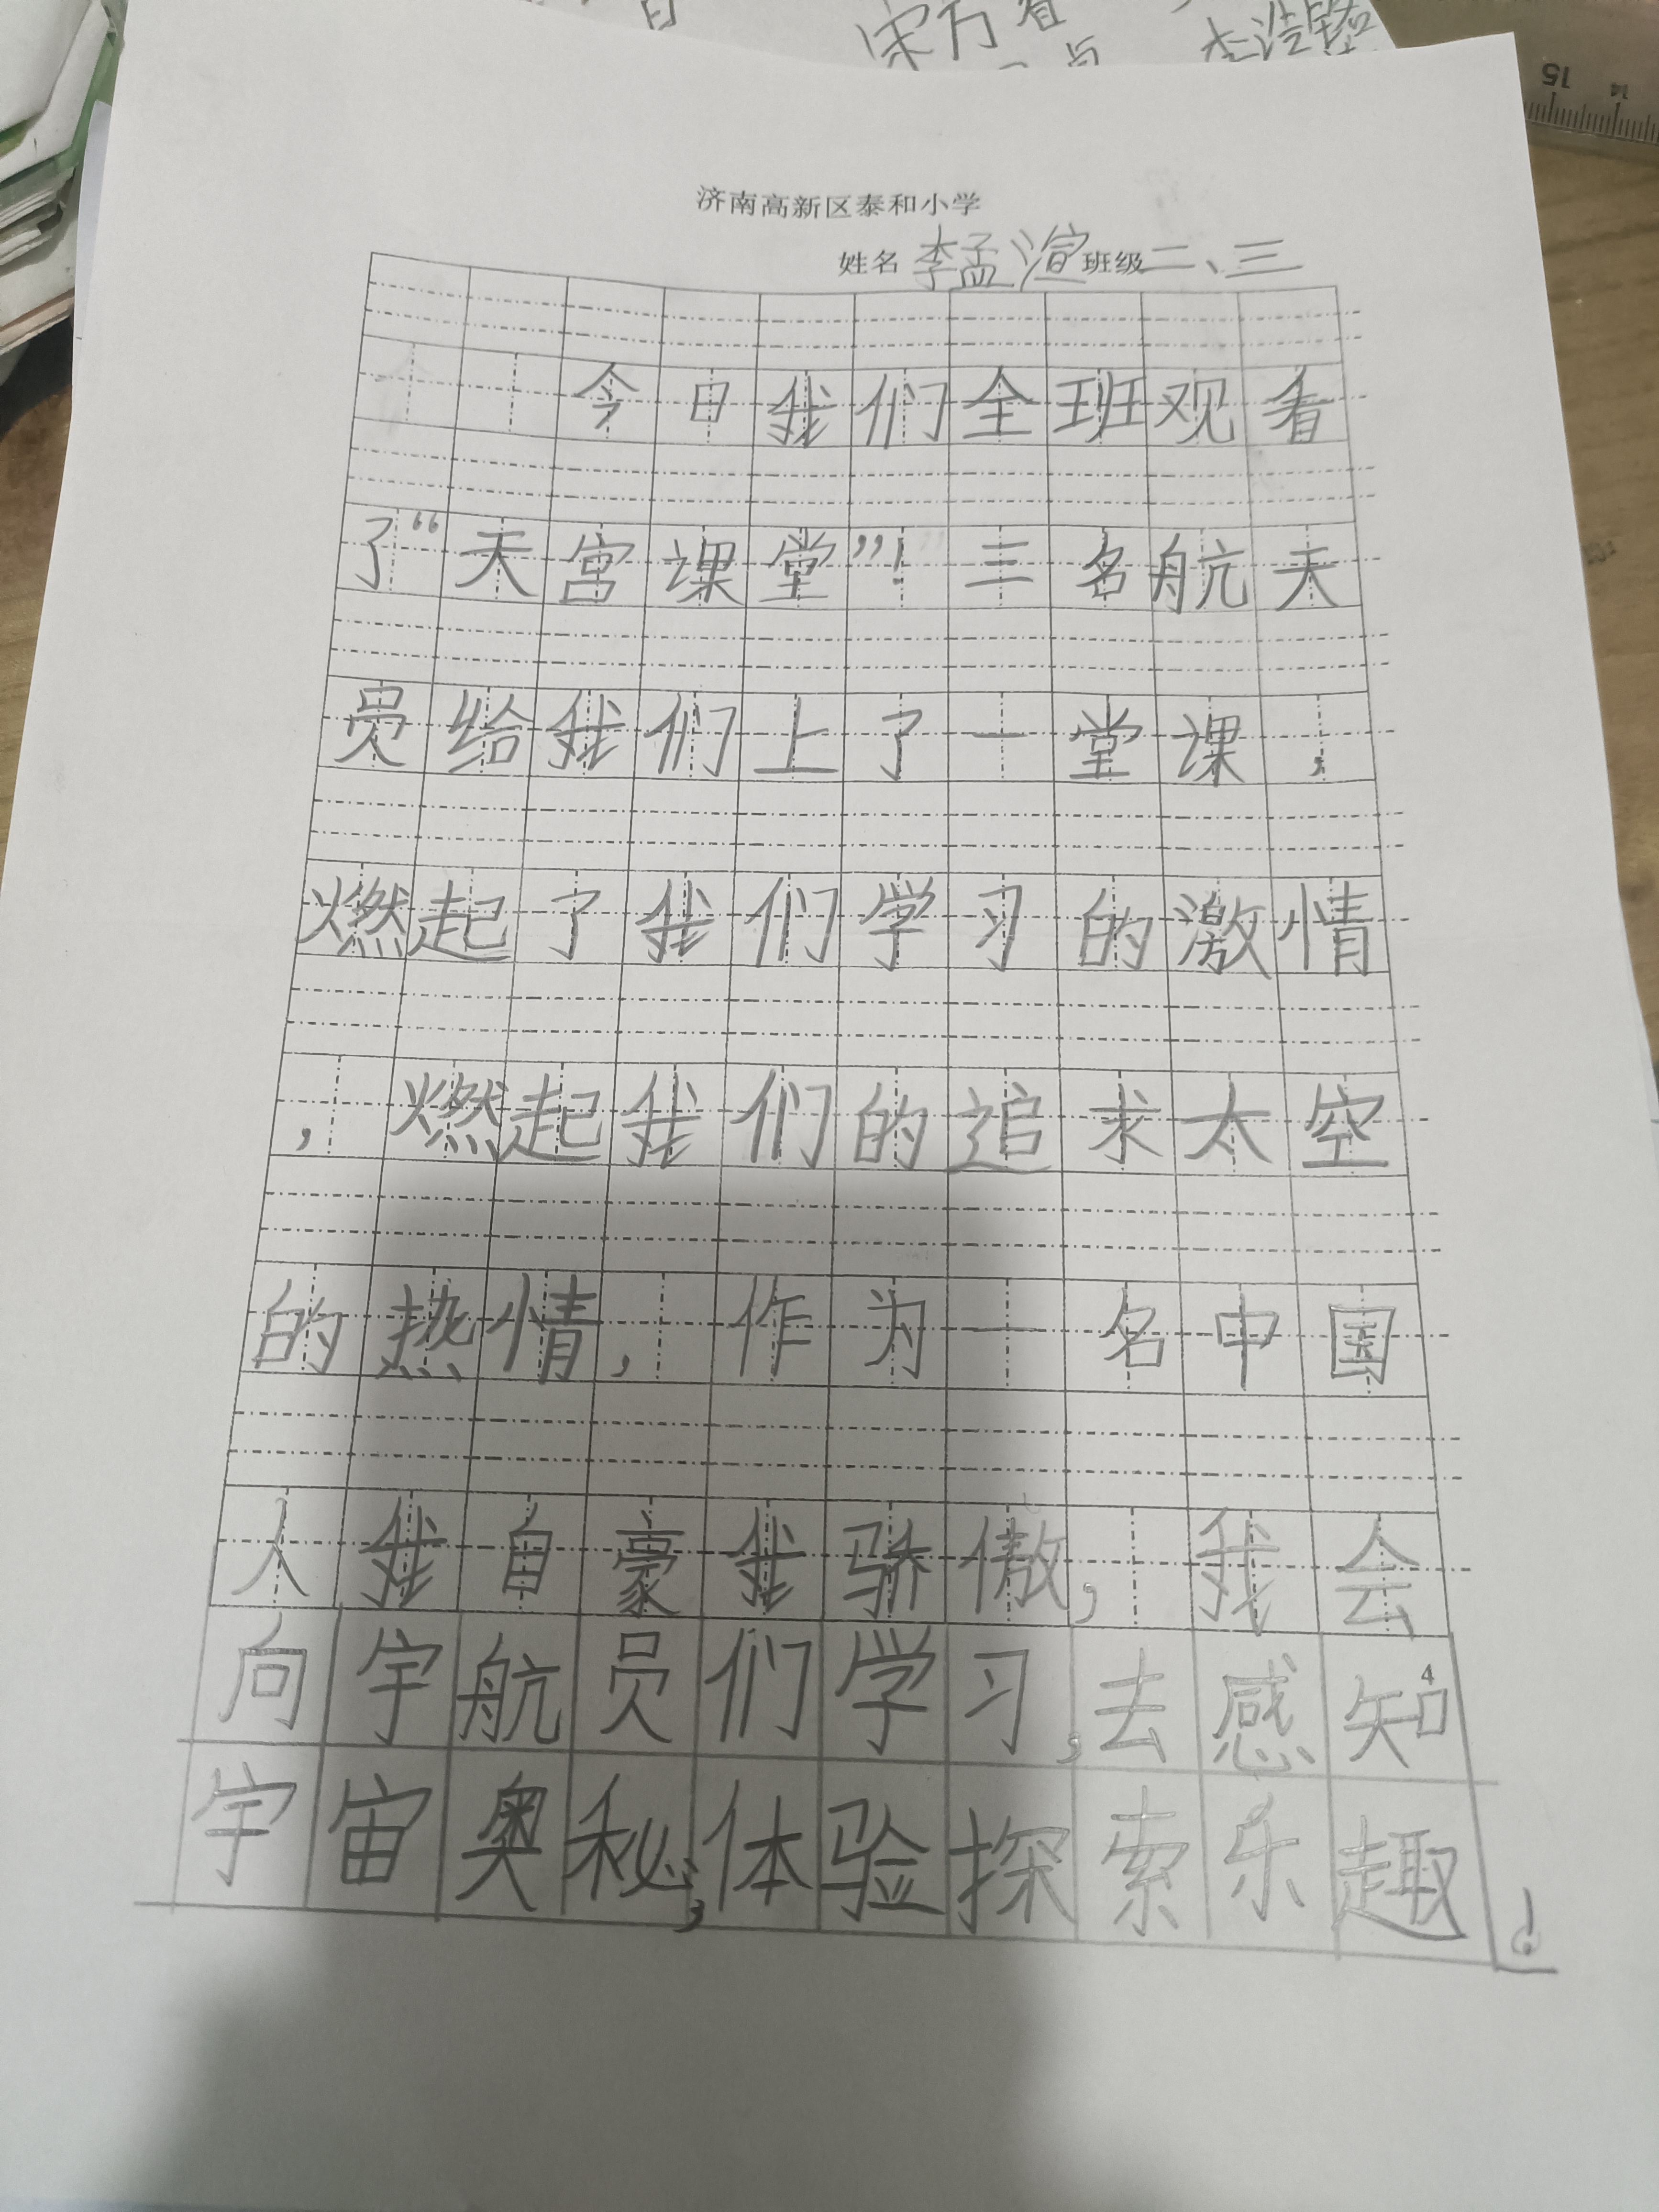 济南高新区泰和小学
姓名 李孟渲 班级 二、三
今日我们全班观看
了“天宫课堂”！三名航天
员给我们上了一堂课，
燃起了我们学习的激情
，燃起我们的追求太空
的热情，作为一名中国
人我自豪我骄傲，我会
向宇航员们学习，去感知
4
宇宙奥秘，体验探索乐趣！
15 14